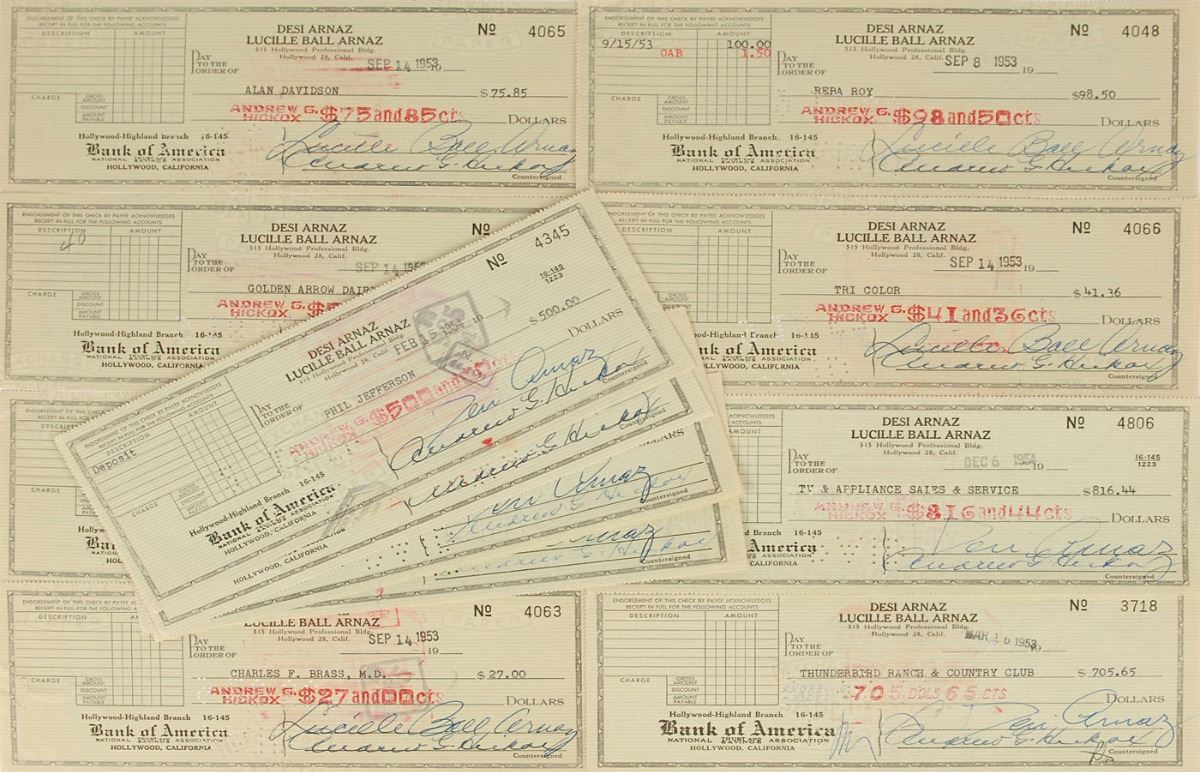 ENDORSEMENT OF THIS CHECK BY PAYEE ACKNOWLEDGES
RECEIPT IN FULL FOR THE FOLLOWING ACCOUNTS
DESCRIPTION AMOUNT
CHARGE
GROSS AMOUNT
DISCOUNT
AMOUNT PAYABLE
DESI ARNAZ
LUCILLE BALL ARNAZ
515 Hollywood Professional Bldg.
Hollywood 28, Calif.
No 4065
PAY TO THE ORDER OF
SEP 14 1953 19
ALAN DAVIDSON $75.85
ANDREW G. HICKOX $75 and 85 cts DOLLARS
Hollywood-Highland Branch 16-145
Bank of America
NATIONAL TRUST AND SAVINGS ASSOCIATION
HOLLYWOOD, CALIFORNIA
Lucille Ball Arnaz
Andrew G. Hickox
Countersigned
ENDORSEMENT OF THIS CHECK BY PAYEE ACKNOWLEDGES
RECEIPT IN FULL FOR THE FOLLOWING ACCOUNTS
DESCRIPTION AMOUNT
9/15/53 100.00
OAB 1.50
CHARGE
GROSS AMOUNT
DISCOUNT
AMOUNT PAYABLE
DESI ARNAZ
LUCILLE BALL ARNAZ
515 Hollywood Professional Bldg.
Hollywood 28, Calif.
No 4048
PAY TO THE ORDER OF
SEP 8 1953 19
REBA ROY $98.50
ANDREW G. HICKOX $98 and 50 cts DOLLARS
Hollywood-Highland Branch 16-145
Bank of America
NATIONAL TRUST AND SAVINGS ASSOCIATION
HOLLYWOOD, CALIFORNIA
Lucille Ball Arnaz
Andrew G. Hickox
Countersigned
ENDORSEMENT OF THIS CHECK BY PAYEE ACKNOWLEDGES
RECEIPT IN FULL FOR THE FOLLOWING ACCOUNTS
DESCRIPTION AMOUNT
40
CHARGE
GROSS AMOUNT
DISCOUNT
AMOUNT PAYABLE
DESI ARNAZ
LUCILLE BALL ARNAZ
515 Hollywood Professional Bldg.
Hollywood 28, Calif.
No
PAY TO THE ORDER OF
SEP 14 195
GOLDEN ARROW DAIR
ANDREW G. HICKOX
Hollywood-Highland Branch 16-145
Bank of America
HOLLYWOOD, CALIFORNIA
DESCRIPTION AMOUNT
CHARGE
GROSS AMOUNT
DISCOUNT
AMOUNT PAYABLE
DESI ARNAZ
LUCILLE BALL ARNAZ
515 Hollywood Professional Bldg.
Hollywood 28, Calif.
No 4066
PAY TO THE ORDER OF
SEP 14 1953 19
TRI COLOR $41.36
ANDREW G. HICKOX $41 and 36 cts DOLLARS
Hollywood-Highland Branch 16-145
Bank of America
NATIONAL TRUST AND SAVINGS ASSOCIATION
HOLLYWOOD, CALIFORNIA
Lucille Ball Arnaz
Andrew G. Hickox
Countersigned
ENDORSEMENT OF THIS CHECK BY PAYEE ACKNOWLEDGES
RECEIPT IN FULL FOR THE FOLLOWING ACCOUNTS
DESCRIPTION AMOUNT
Deposit
CHARGE
GROSS AMOUNT
DISCOUNT
AMOUNT PAYABLE
DESI ARNAZ
LUCILLE BALL ARNAZ
515 Hollywood Professional Bldg.
Hollywood 28, Calif.
No 4345
16-145
1223
PAY TO THE ORDER OF
FEB 1954 19
PHIL JEFFERSON $500.00
DOLLARS
Hollywood-Highland Branch 16-145
Bank of America
NATIONAL TRUST AND SAVINGS ASSOCIATION
HOLLYWOOD, CALIFORNIA
Desi Arnaz
Andrew G. Hickox
Countersigned
Andrew G. Hickox
DOLLARS
Desi Arnaz
Andrew G. Hickox
HOLLYWOOD, CALIFORNIA
Arnaz
Andrew G. Hickox
Countersigned
AMOUNT
DESI ARNAZ
LUCILLE BALL ARNAZ
515 Hollywood Professional Bldg.
Hollywood 28, Calif.
No 4806
16-145
1223
PAY TO THE ORDER OF
DEC 6 1954 19
TV & APPLIANCE SALES & SERVICE $816.44
ANDREW G. HICKOX $816 and 44 cts DOLLARS
Branch 16-145
America
HOLLYWOOD, CALIFORNIA
Desi Arnaz
Andrew G. Hickox
Countersigned
ENDORSEMENT OF THIS CHECK BY
RECEIPT IN FULL FOR THE
DESCRIPTION
CHARGE
GROSS AMOUNT
DISCOUNT
AMOUNT PAYABLE
LUCILLE BALL ARNAZ
515 Hollywood Professional Bldg.
Hollywood 28, Calif.
No 4063
PAY TO THE ORDER OF
SEP 14 1953 19
CHARLES F. BRASS, M.D. $27.00
ANDREW G. HICKOX $27 and 00 cts DOLLARS
Hollywood-Highland Branch 16-145
Bank of America
NATIONAL TRUST AND SAVINGS ASSOCIATION
HOLLYWOOD, CALIFORNIA
Lucille Ball Arnaz
Andrew G. Hickox
Countersigned
ENDORSEMENT OF THIS CHECK BY PAYEE ACKNOWLEDGES
RECEIPT IN FULL FOR THE FOLLOWING ACCOUNTS
DESCRIPTION AMOUNT
CHARGE
GROSS AMOUNT
DISCOUNT
AMOUNT PAYABLE
DESI ARNAZ
LUCILLE BALL ARNAZ
515 Hollywood Professional Bldg.
Hollywood 28, Calif.
No 3718
PAY TO THE ORDER OF
MAR 16 1953 19
THUNDERBIRD RANCH & COUNTRY CLUB $705.65
705 DOLS 65 CTS
DOLLARS
Hollywood-Highland Branch 16-145
Bank of America
NATIONAL TRUST AND SAVINGS ASSOCIATION
HOLLYWOOD, CALIFORNIA
Desi Arnaz
Andrew G. Hickox
Countersigned